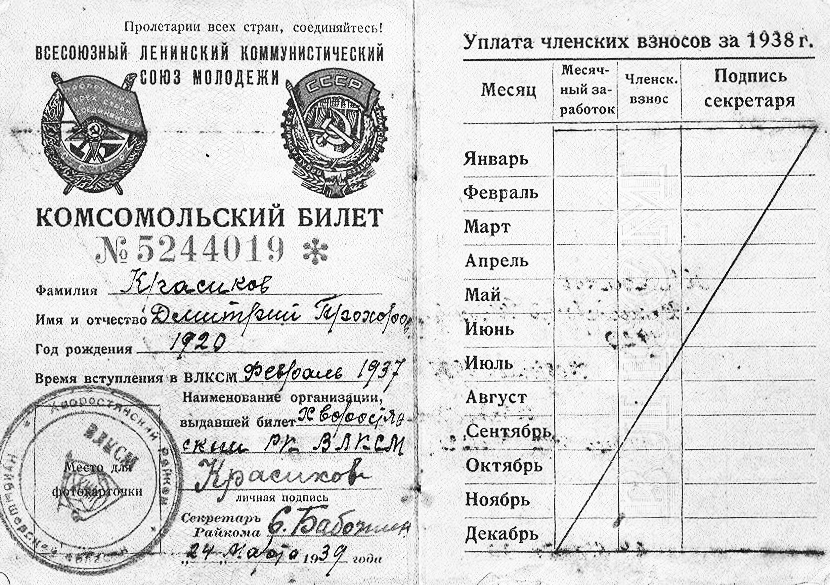 Пролетарии всех стран, соединяйтесь!
ВСЕСОЮЗНЫЙ ЛЕНИНСКИЙ КОММУНИСТИЧЕСКИЙ
СОЮЗ МОЛОДЕЖИ
СССР
КОМСОМОЛЬСКИЙ БИЛЕТ
№ 5244019 *
Фамилия Красиков
Имя и отчество Дмитрий Прохоров
Год рождения 1920
Время вступления в ВЛКСМ Февраль 1937
Наименование организации,
выдавшей билет Хворостян-
ский РК ВЛКСМ
Место для
фотокарточки
ВЛКСМ
Красиков
личная подпись
Секретарь
Райкома
"24" марта 1939 года
Уплата членских взносов за 1938 г.
Месяц
Месяч-
ный за-
работок
Членск.
взнос
Подпись
секретаря
Январь
Февраль
Март
Апрель
Май
Июнь
Июль
Август
Сентябрь
Октябрь
Ноябрь
Декабрь